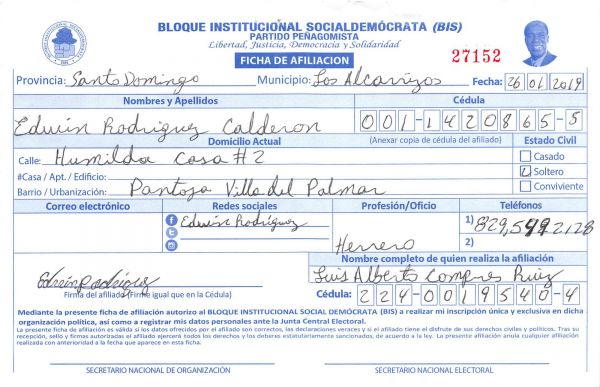 BLOQUE INSTITUCIONAL SOCIALDEMÓCRATA (BIS)
PARTIDO PEÑAGOMISTA
Libertad, Justicia, Democracia y Solidaridad
FICHA DE AFILIACION
27152
Provincia: Santo Domingo Municipio: Los Alcarrizos Fecha: 26/01/2019
Nombres y Apellidos Cédula
Edwin Rodriguez Calderon 001-1420865-5
Domicilio Actual (Anexar copia de cédula del afiliado) Estado Civil
Calle: Humilda Casa #2 Casado
#Casa / Apt. / Edificio: Soltero
Barrio / Urbanización: Pantoja Villa del Palmar Conviviente
Correo electrónico Redes sociales Profesión/Oficio Teléfonos
Edwin Rodríguez 1) 829,5
2)
Herrero
Nombre completo de quien realiza la afiliación
Edwin Rodriguez Luis Alberto Compres Ruiz
Firma del afiliado (Firme igual que en la Cédula) Cédula: 224-0019540-4
Mediante la presente ficha de afiliación autorizo al BLOQUE INSTITUCIONAL SOCIAL DEMÓCRATA (BIS) a realizar mi inscripción única y exclusiva en dicha
organización política, así como a registrar mis datos personales ante la Junta Central Electoral.
La presente ficha de afiliación es válida si los datos ofrecidos por el afiliado son correctos, las declaraciones veraces y si el afiliado tiene el disfrute de sus derechos civiles y políticos. Tras su
recepción, sello y firmas autorizadas el afiliado ejercerá todos los derechos y los deberes estatutariamente sancionados, de acuerdo a la ley. La presente afiliación anula cualquier afiliación
realizada con anterioridad a la fecha que aparece en esta ficha.
SECRETARIO NACIONAL DE ORGANIZACIÓN SECRETARIO NACIONAL ELECTORAL